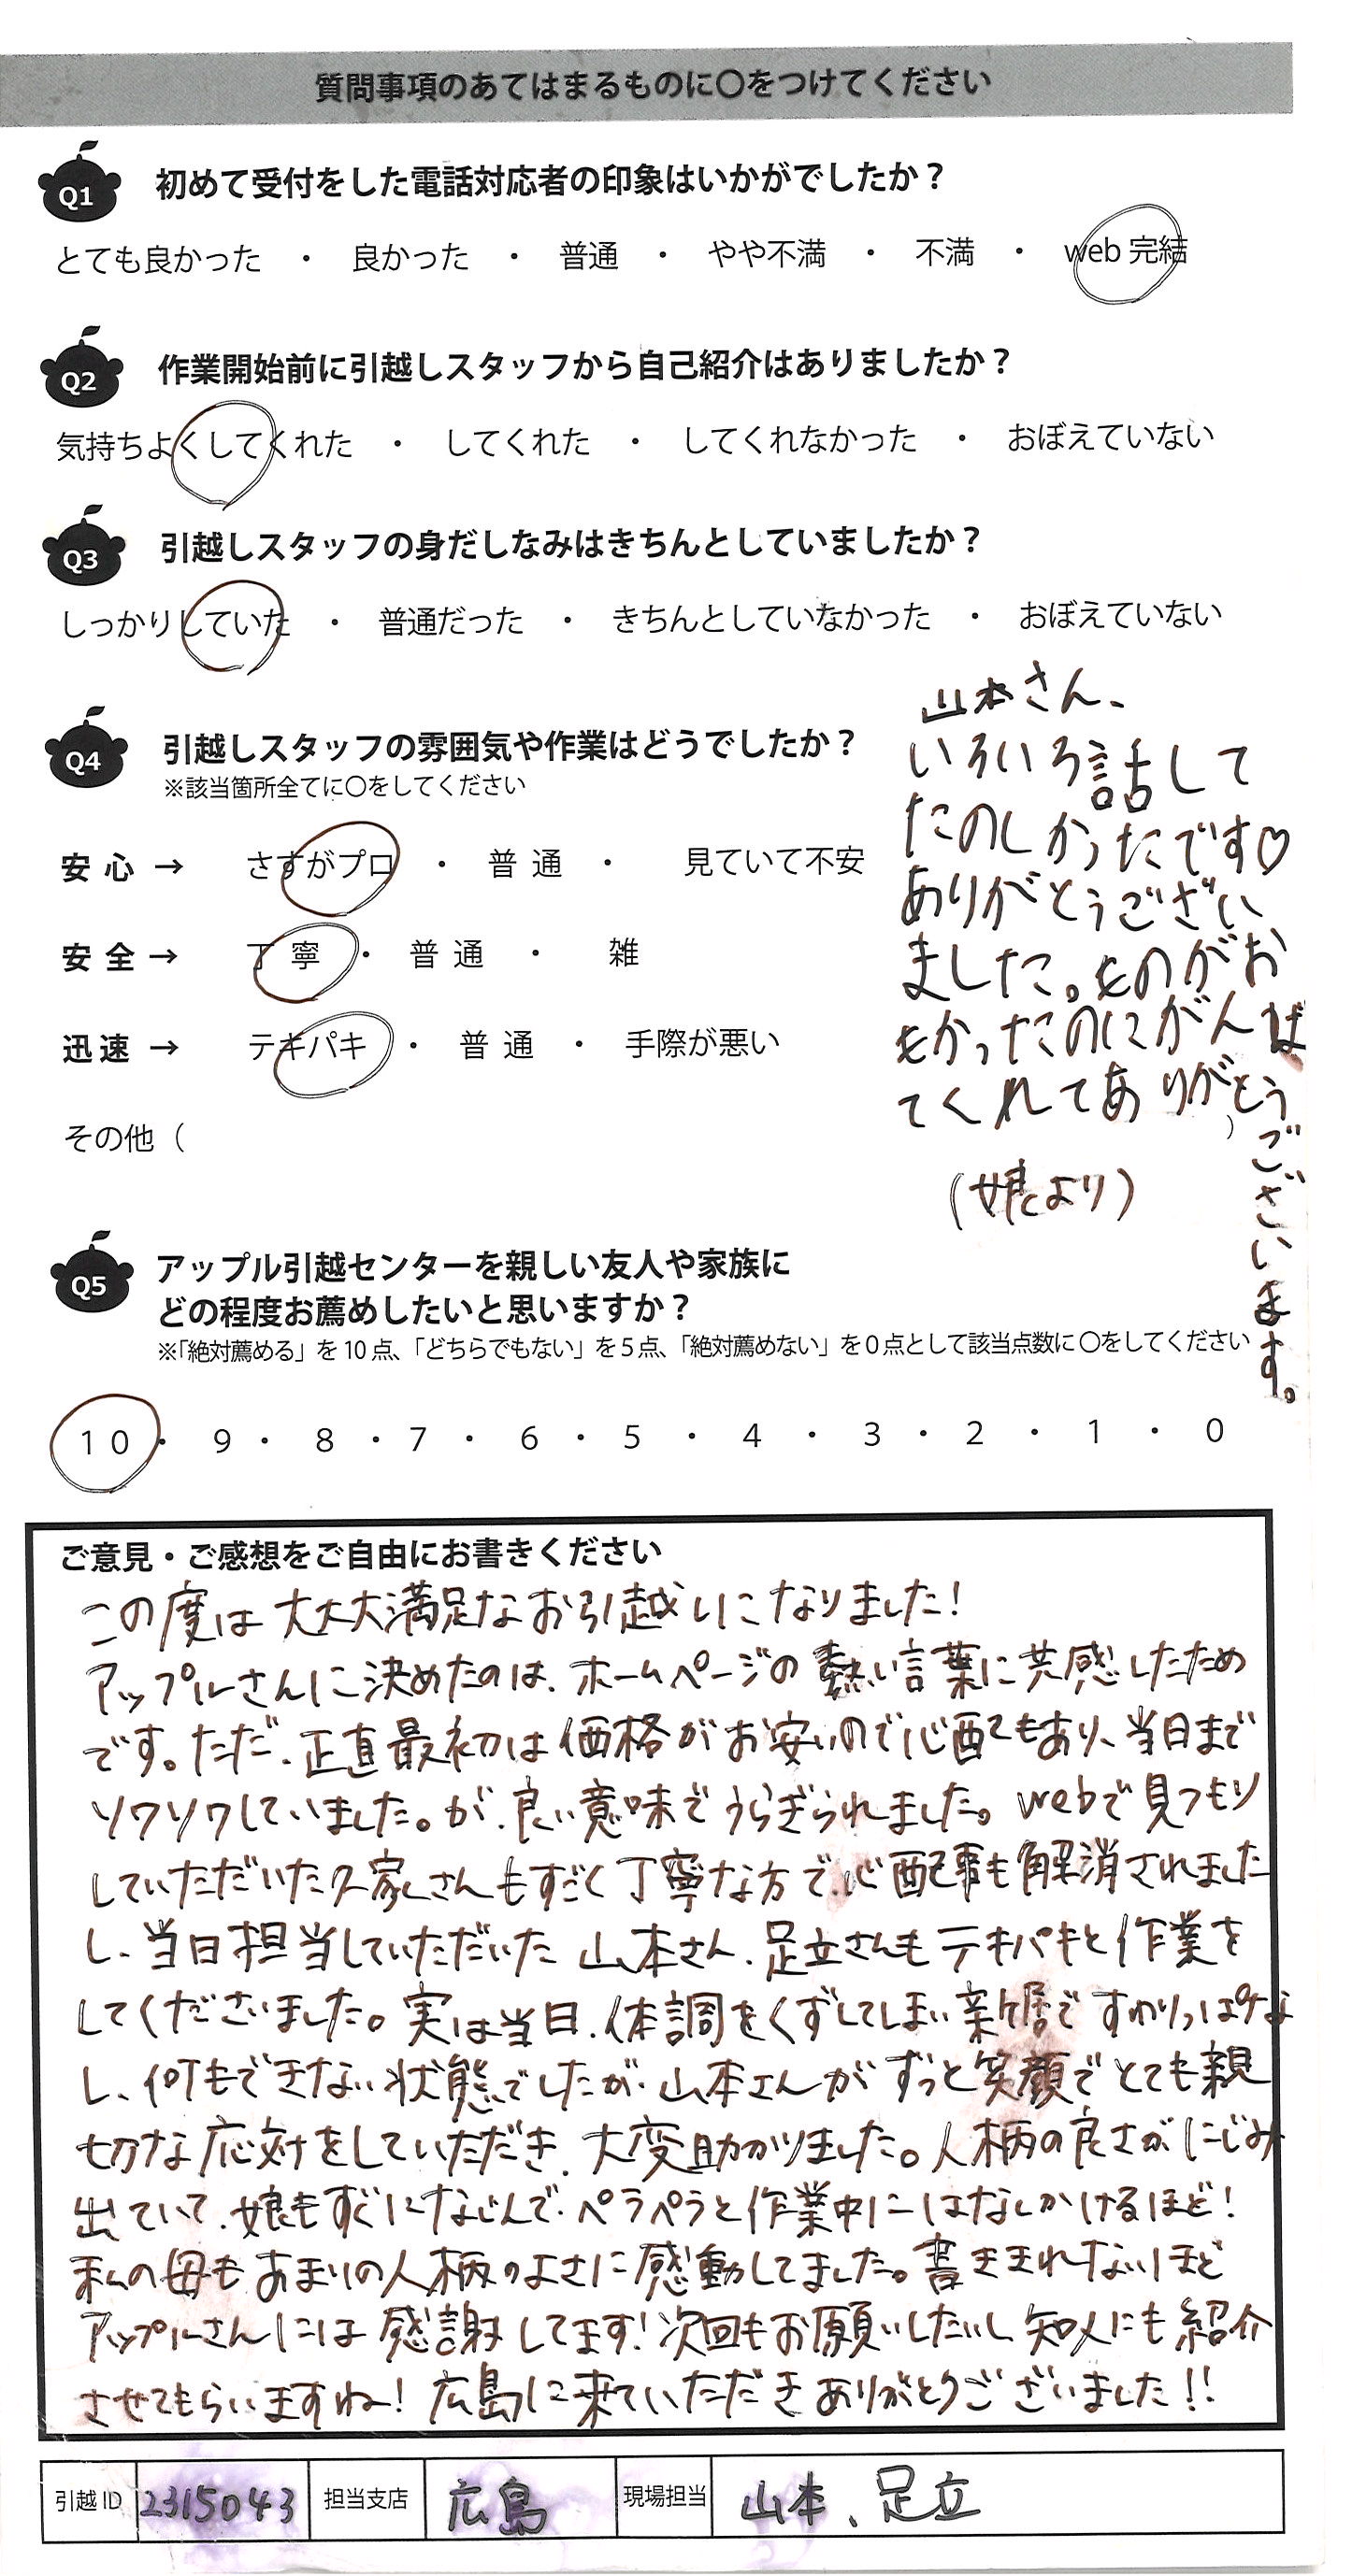 質問事項のあてはまるものに〇をつけてください
Q1 初めて受付をした電話対応者の印象はいかがでしたか？
とても良かった ・ 良かった ・ 普通 ・ やや不満 ・ 不満 ・ web 完結
Q2 作業開始前に引越しスタッフから自己紹介はありましたか？
気持ちよくしてくれた ・ してくれた ・ してくれなかった ・ おぼえていない
Q3 引越しスタッフの身だしなみはきちんとしていましたか？
しっかりしていた ・ 普通だった ・ きちんとしていなかった ・ おぼえていない
Q4 引越しスタッフの雰囲気や作業はどうでしたか？
※該当箇所全てに〇をしてください
安心 → さすがプロ ・ 普通 ・ 見ていて不安
安全 → 丁寧 ・ 普通 ・ 雑
迅速 → テキパキ ・ 普通 ・ 手際が悪い
その他（ ）
山本さん、
いろいろ話して
たのしかったです♡
ありがとうござい
ました。ものがお
もかったのにがんば
てくれてありがとう
ございます。
(娘より)
Q5 アップル引越センターを親しい友人や家族に
どの程度お薦めしたいと思いますか？
※「絶対薦める」を 10 点、「どちらでもない」を 5 点、「絶対薦めない」を 0 点として該当点数に 〇をしてください
10 ・ 9 ・ 8 ・ 7 ・ 6 ・ 5 ・ 4 ・ 3 ・ 2 ・ 1 ・ 0
ご意見・ご感想をご自由にお書きください
この度は大大大満足なお引越しになりました！
アップルさんに決めたのは、ホームページの熱い言葉に共感したため
です。ただ、正直最初は価格がお安いので心配でもあり、当日まで
ソワソワしていました。が、良い意味でうらぎられました。webで見つもり
していただいた久家さんもすごく丁寧な方で、心配事も解消されました
し、当日担当していただいた山本さん、足立さんもテキパキと作業を
してくださいました。実は当日、体調をくずしてしまい新居ですわりっぱな
し、何もできない状態でしたが、山本さんがずっと笑顔でとても親
切な応対をしていただき、大変助かりました。人柄の良さがにじみ
出ていて、娘もすぐになじんで、ペラペラと作業中にはなしかけるほど！
私の母もあまりの人柄のよさに感動してました。書ききれないほど
アップルさんには感謝してます！次回もお願いしたいし、知人にも紹介
させてもらいますね！広島に来ていただきありがとうございました！！
引越 ID 2315043 担当支店 広島 現場担当 山本、足立